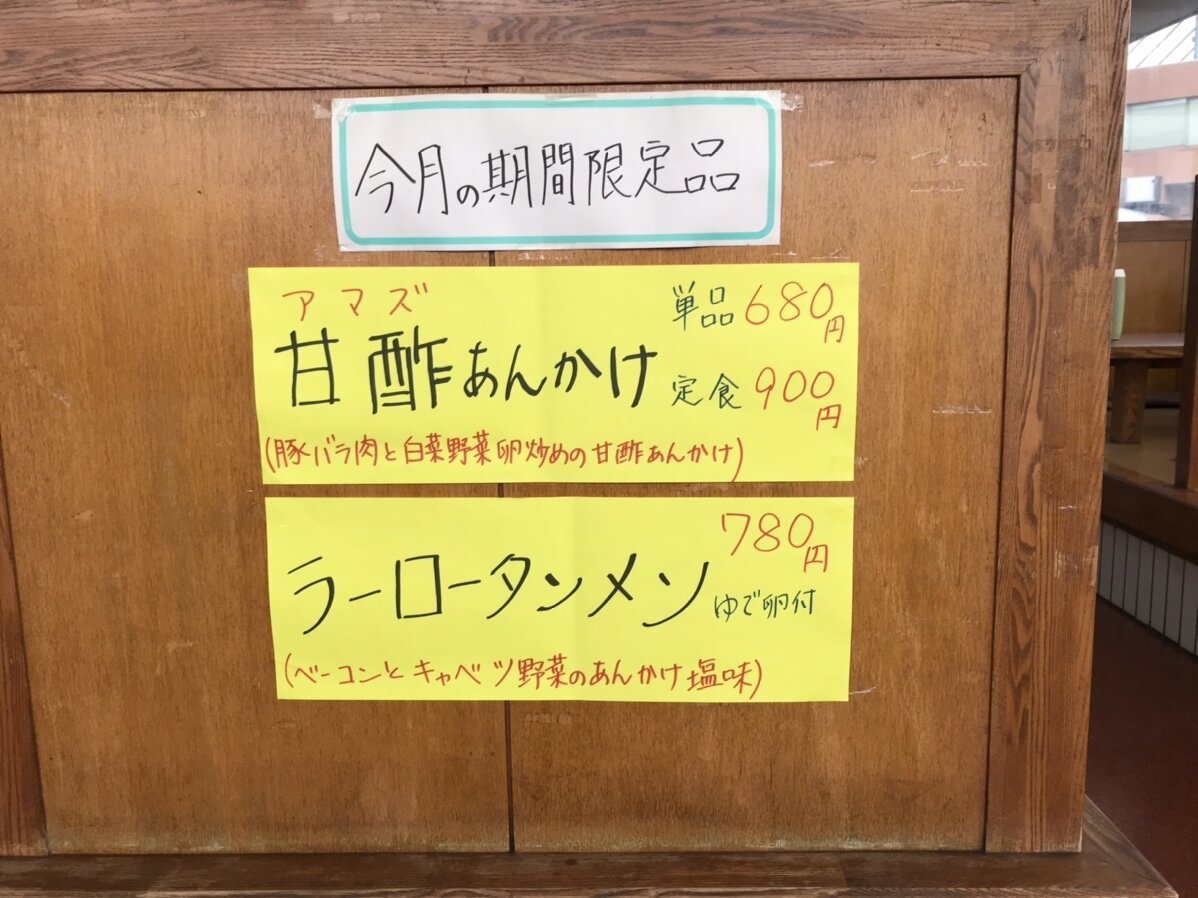 今月の期間限定品
アマズ
甘酢あんかけ
単品680円
定食900円
(豚バラ肉と白菜野菜卵炒めの甘酢あんかけ)
780円
ラーロータンメン
ゆで卵付
(ベーコンとキャベツ野菜のあんかけ塩味)